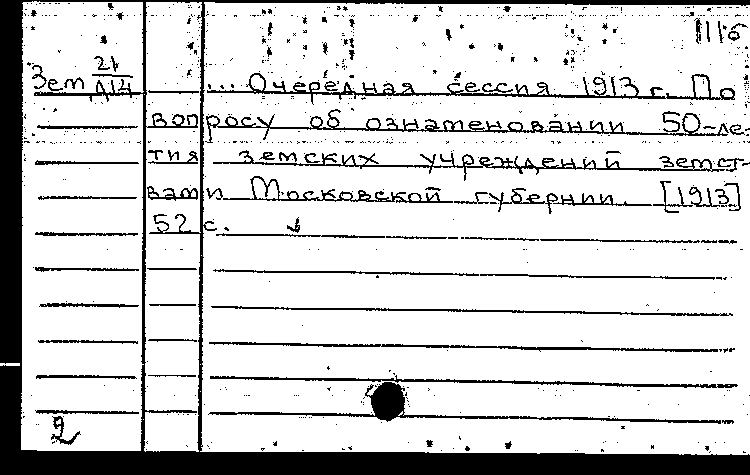 1116
Зем 21/Д14 ... Очередная сессия 1913 г. По
вопросу об ознаменовании 50-ле-
тия земских учреждений земст-
вами Московской губернии. [1913]
52 с.
2